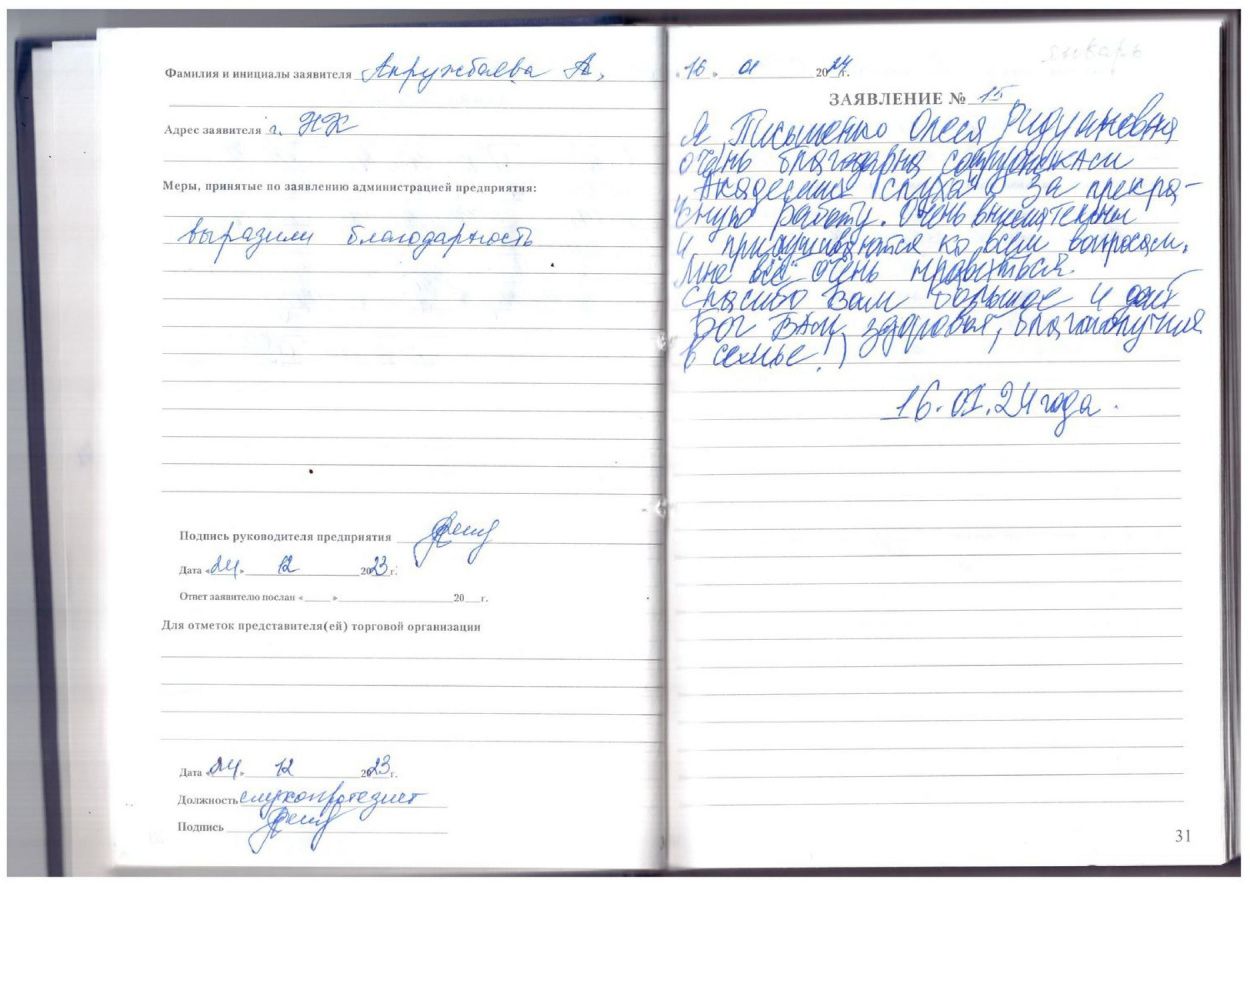 Фамилия и инициалы заявителя Апружбаева А.
Адрес заявителя г. НК
Меры, принятые по заявлению администрацией предприятия:
выразили благодарность
Подпись руководителя предприятия
Дата «24» 12 2023 г.
Ответ заявителю послан «___» 20__г.
Для отметок представителя(ей) торговой организации
Дата «24» 12 2023 г.
Должность слухопротезист
Подпись
январь
«16» 01 2024 г.
ЗАЯВЛЕНИЕ № 15
Я, Письменко Олеся Ридуановна
очень благодарна сотрудникам
"Академии слуха" за прекра-
сную работу. Очень внимательны
и прислушиваются ко всем вопросам.
Мне всё очень нравиться.
Спасибо Вам большое и дай
Бог Вам здоровья, благополучия
в семье!)
16.01.24 года.
31